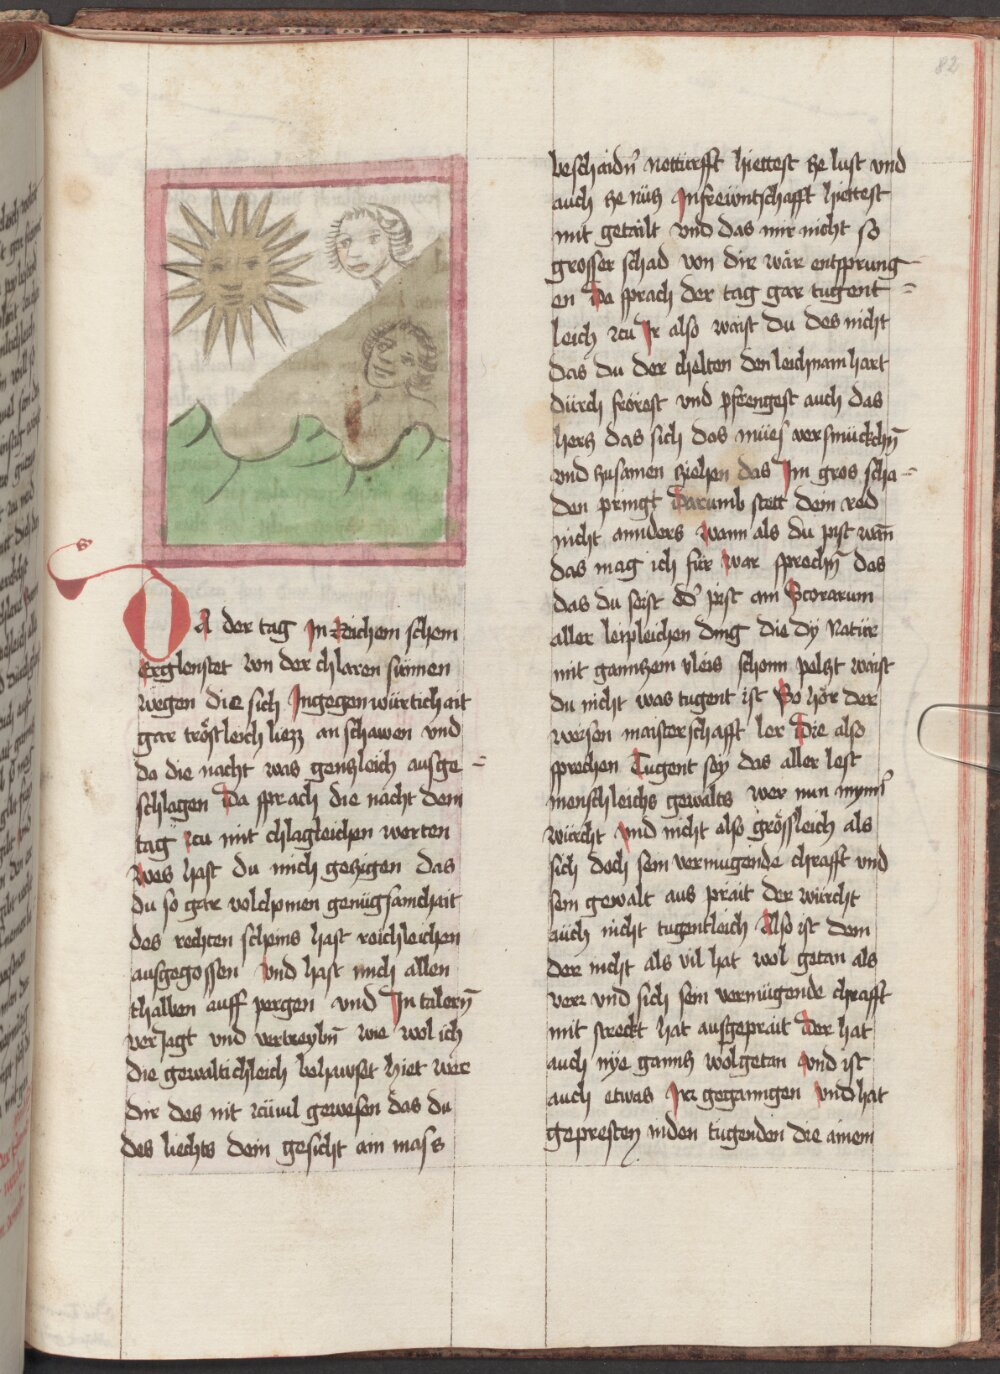 82
DA der tag In Reichem schein
Erglenstet von der chlaren sunnen
wegen die sich Ingegenwürtichait
gar tröstleich liezz anschawen vnd
do die nacht was gensleich ausge=
schlagen Da sprach die nacht dem
tag zcu mit chlagleichen worten
Wes hast du mich gezigen das
du so gar volchomen genügsamchait
des rechten scheins hast reichleichen
ausgegossen vnd hast mich allen
thalben auff pergen vnd In talern̄
verJagt vnd vertreybn̄ wie wol ich
die gewaltichleich behawset hiet wer
dir des nit zcuuil gewesen das du
des liechts dein gesicht ain mass
beschaidn̄ nottürfft hiettest ze lust vnd
auch ze nüs Infrewntschafft hiettest
mit getailt vnd das mir nicht so
grosser schad von dir wär entsprung
en Da sprach der tag gar tugent=
leich zcu Ir also waist du des nicht
das du der chelten den leichnam hart
dürch frörest vnd pfrengest auch das
hers das sich das mües versmückchn̄
vnd zusamen ziehen das Im gros scha=
den pringt Darumb stett dein red
nicht annders wann als du pist wan̄
das mag ich für war sprechn̄ das
das du seist pist ain Scorarum
aller leipleichen ding die dy Natür
mit gannzem vleis schonn pelzt waist
du nicht was tugent ist So hör der
weisen maisterschafft ler Die also
sprechen Tugent sey das aller lest
menschleichs gewalts wer nun mynn̄
würcht vnd nicht also grössleich als
sich doch sein vermugende chrafft vnd
sein gewalt aus prait der würcht
auch nicht tugentleich Also ist dem
der nicht als vil hat wol getan als
verr vnd sich sein vermügende chrafft
mit streckt hat ausgeprait Der hat
auch nye ganns wolgetan vnd ist
auch etwas Irr gegangen vnd hat
gepresten inden tugenden die ainem